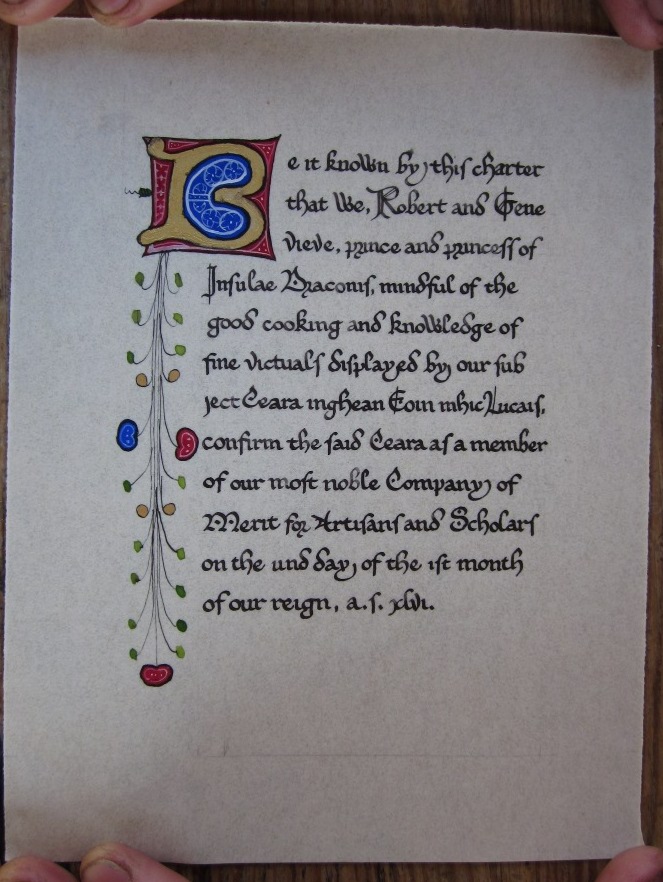 Be it known by this charter
that We, Robert and Gene
vieve, prince and princess of
Insulae Draconis, mindful of the
good cooking and knowledge of
fine victuals displayed by our sub
ject Ceara inghean Eoin mhic Lucais,
confirm the said Ceara as a member
of our most noble Company of
Merit for Artisans and Scholars
on the iind day of the ist month
of our reign, a.s. xlvi.